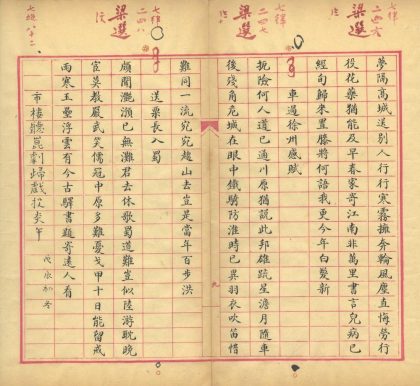 夢隔高城送別人行行寒霧擁奔輪風塵直悔勞行
役花藥猶能及早春家寄江南非萬里書言兒病已
經旬歸來置膝將何語我更今年白髮新
車過徐州感賦
扼險何人道已通川原猶說此邦雄疏星澹月隨車
後殘角危城在眼中鐵騎防淮時已異羽衣吹笛惜
難同一流宛宛趨山去豈是當年百步洪
送票長入蜀
頗聞灩澦已無灘君去休歌蜀道難豈似陸游耽晚
宦莫教嚴武笑儒冠中原多難憂戈甲十日能留戒
雨寒玉壘浮雲有今古驛書題寄遠人看
市樓聽崑劇歸戲投炎午
七律
二四六
梁選
七律
二四七
梁選
七律
二四八
梁選
七絕八十二
九